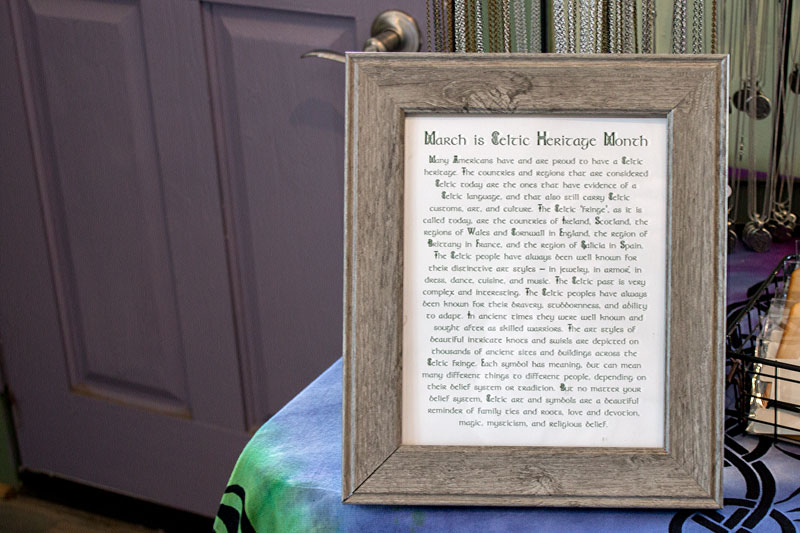 March is Celtic Heritage Month
Many Americans have and are proud to have a Celtic
heritage. The countries and regions that are considered
Celtic today are the ones that have evidence of a
Celtic language, and that also still carry Celtic
customs, art, and culture. The Celtic "fringe", as it is
called today, are the countries of Ireland, Scotland, the
regions of Wales and Cornwall in England, the region of
Brittany in France, and the region of Galicia in Spain.
The Celtic people have always been well known for
their distinctive art styles – in jewelry, in armor, in
dress, dance, cuisine, and music. The Celtic past is very
complex and interesting. The Celtic peoples have always
been known for their bravery, stubbornness, and ability
to adapt. In ancient times they were well known and
sought after as skilled warriors. The art styles of
beautiful intricate knots and swirls are depicted on
thousands of ancient sites and buildings across the
Celtic Fringe. Each symbol has meaning, but can mean
many different things to different people, depending on
their belief system or tradition. But no matter your
belief system, Celtic art and symbols are a beautiful
reminder of family ties and roots, love and devotion,
magic, mysticism, and religious belief.